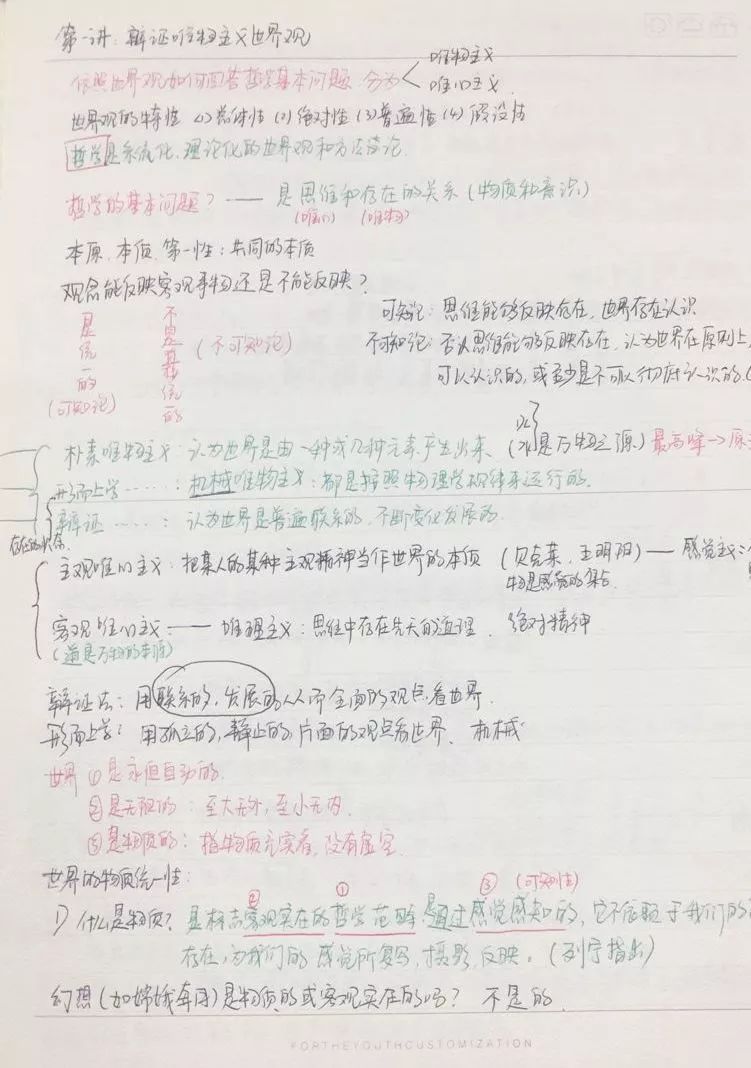 第一讲：辩证唯物主义世界观
依照世界观如何回答哲学基本问题 分为
唯物主义
唯心主义
世界观的特性 (1)总体性 (2)绝对性 (3)普遍性 (4)假设性
哲学是系统化、理论化的世界观和方法论
哲学的基本问题？—— 是思维和存在的关系(物质和意识)
(唯心) (唯物)
本原、本质、第一性：共同的本质
观念能反映客观事物还是不能反映？
是统一的
(可知论)
不是统一的
(不可知论)
可知论：思维能够反映存在，世界存在认识
不可知论：否认思维能够反映存在，认为世界在原则上
可以认识的，或至少是不可以彻底认识的
朴素唯物主义：认为世界是由一种或几种元素产生出来、(水是万物之源) 最高峰→原
形而上学……：机械唯物主义：都是按照物理学规律来运行的.
辩证……：认为世界是普遍联系的，不断变化发展的
存在的状态
主观唯心主义：把某人的某种主观精神当作世界的本质 (贝克莱、王明阳)—— 感觉主义：
物是感觉的集合
客观唯心主义——唯理主义：思维中存在先天的道理、绝对精神
(道是万物的本原)
辩证法：用联系的，发展的从而全面的观点看世界.
形而上学：用孤立的，静止的，片面的观点看世界、机械
世界 ①是永恒自动的.
②是无限的：至大无外，至小无内.
③是物质的：指物质充实着，没有虚空.
世界的物质统一性：
② ① ③ (可知性)
1) 什么是物质？是标志客观实在的哲学范畴 是通过感觉感知的，它不依赖于我们的
存在，为我们的感觉所复写，摄影，反映。(列宁指出)
幻想(如嫦娥奔月)是物质的或客观实在的吗？不是的.
FORTHEYOUTHCUSTOMIZATION